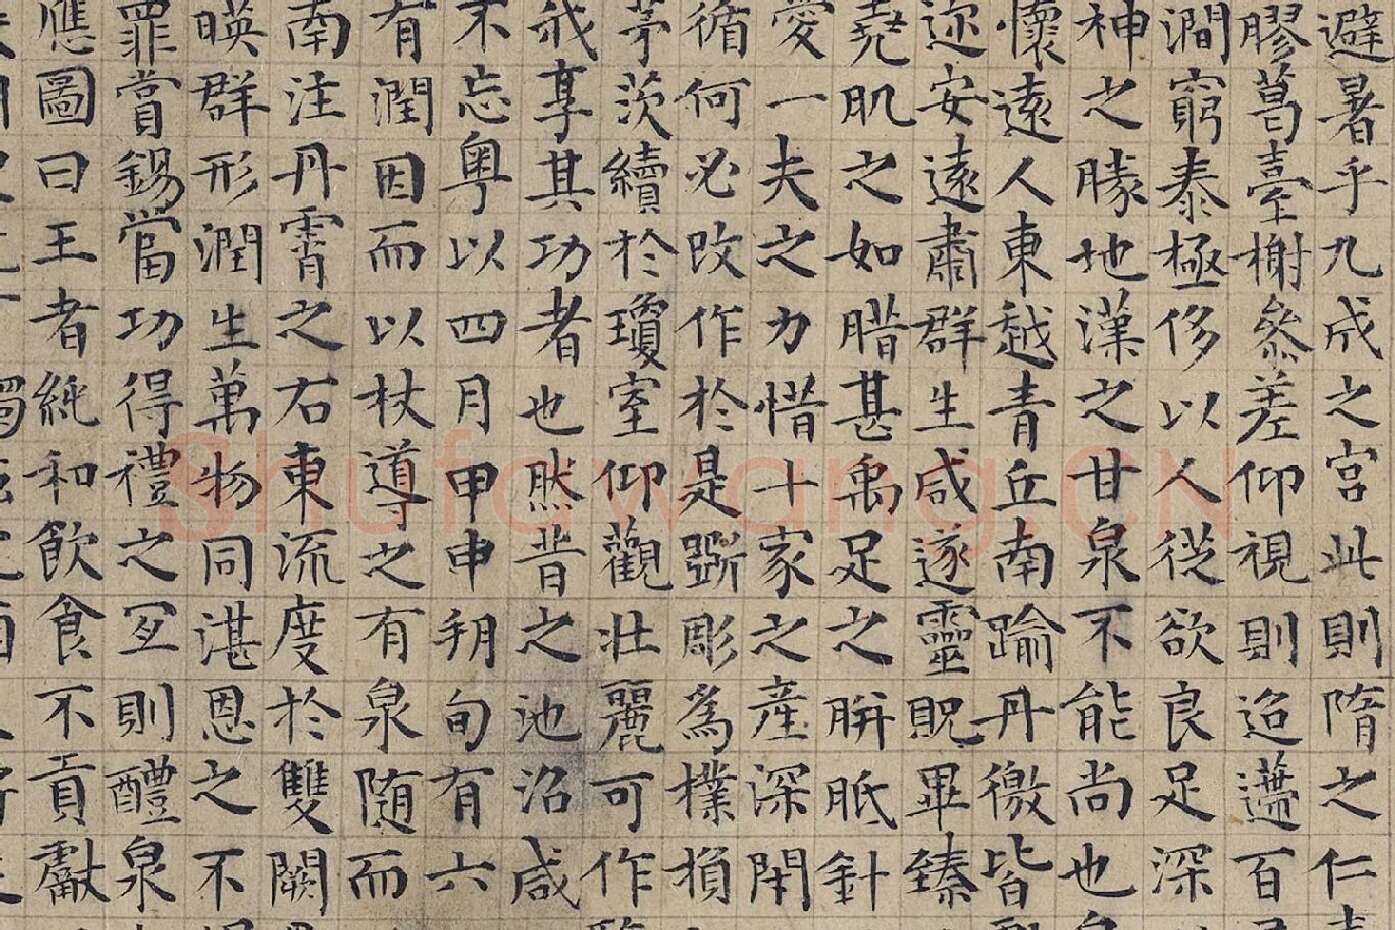 避暑乎九成之宮此則隋之仁
膠葛臺榭參差仰視則迢遰百
澗窮泰極侈以人從欲良足深
神之勝地漢之甘泉不能尚也
懷遠人東越青丘南踰丹徼皆
迩安遠肅群生咸遂靈貺畢臻
堯肌之如腊甚禹足之胼胝針
愛一夫之力惜十家之產深閉
循何必改作於是斵彫為樸損
茅茨續於瓊室仰觀壯麗可作
哉享其功者也然昔之池沼咸
不忘粵以四月甲申朔旬有六
有潤因而以杖導之有泉随而
南注丹霄之右東流度於雙闕
暎群形潤生萬物同湛恩之不
罪賞錫當功得禮之宜則醴泉
應圖曰王者純和飲食不貢獻
Shufawang.CN